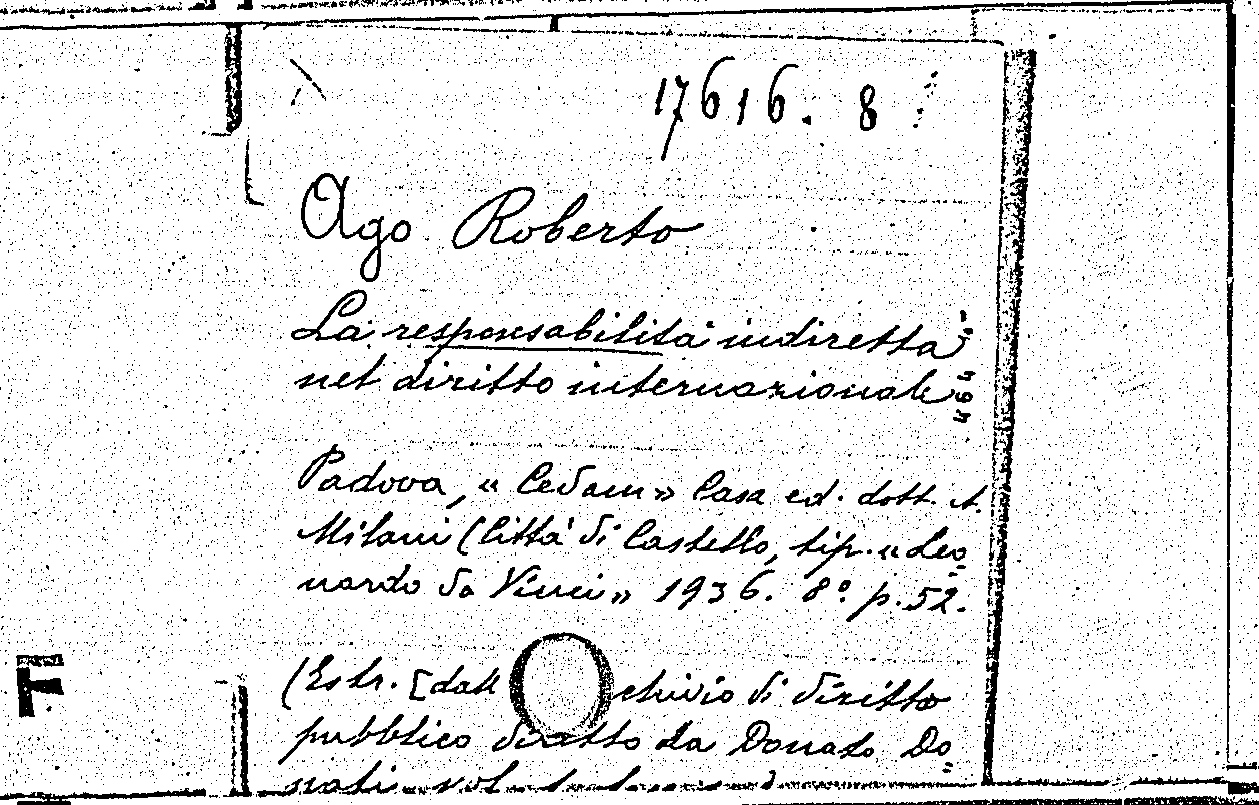 17616. 8
Ago Roberto
La responsabilità indiretta
nel diritto internazionale
Padova, « Cedam » Casa ed. dott. A.
Milani (Città di Castello, tip. « Leo=
nardo da Vinci » 1936. 8º. p. 52.
(Estr. [dall' chivio di diritto
pubblico diretto da Donato Do=
nati vol.
F